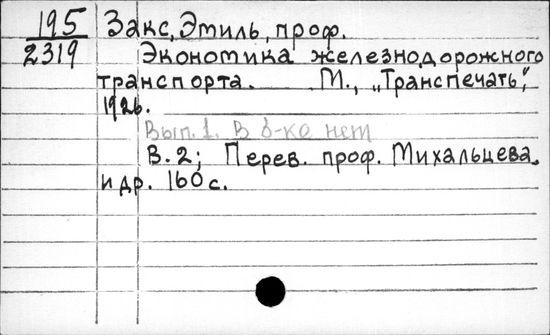 195
2319
Закс, Эмиль, проф.
Экономика железнодорожного
транспорта. М., „Транспечать",
1926.
Вып. 1. В б-ке нет
В. 2; Перев. проф. Михальцева
и др. 160 с.